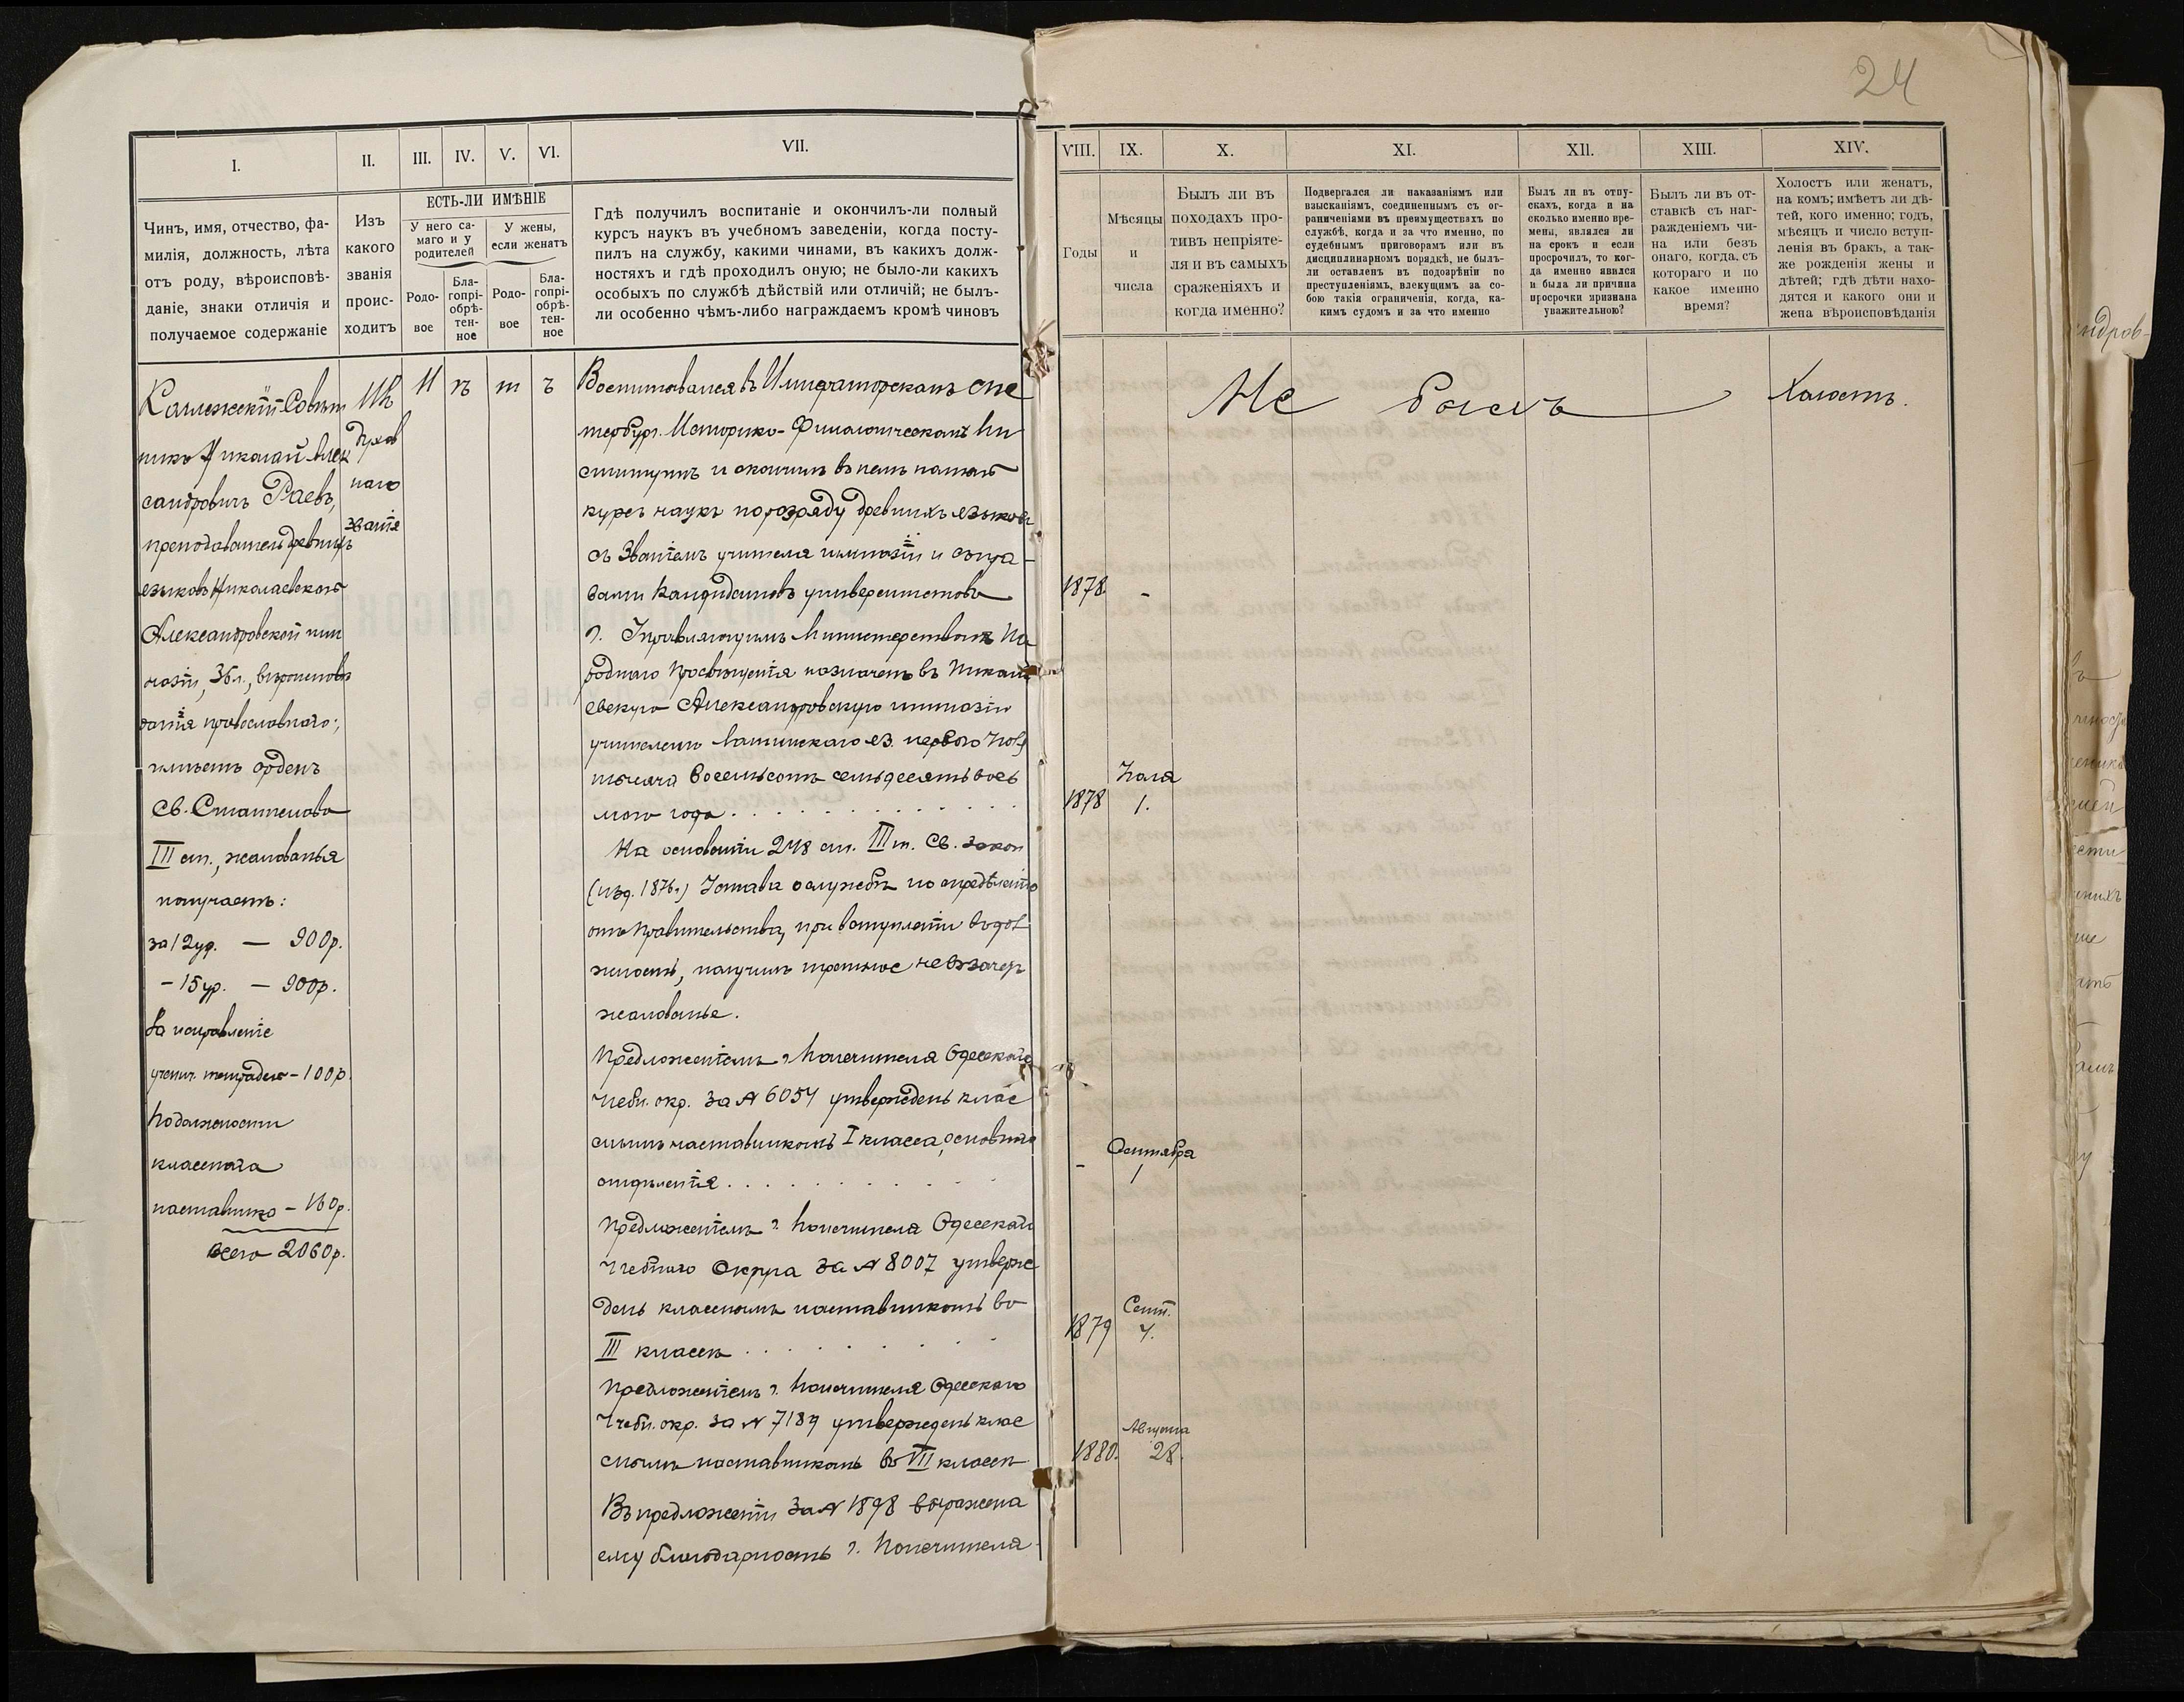 24
I.
II.
III.
IV.
V.
VI.
VII.
ЕСТЬ-ЛИ ИМѢНІЕ
Чинъ, имя, отчество, фа-
милія, должность, лѣта
отъ роду, вѣроисповѣ-
даніе, знаки отличія и
получаемое содержаніе
Изъ
какого
званія
проис-
ходитъ
У него са-
маго и у
родителей
У жены,
если женатъ
Родо-
вое
Бла-
гопрі-
обрѣ-
тен-
ное
Родо-
вое
Бла-
гопрі-
обрѣ-
тен-
ное
Гдѣ получилъ воспитаніе и окончилъ-ли полный
курсъ наукъ въ учебномъ заведеніи, когда посту-
пилъ на службу, какими чинами, въ какихъ долж-
ностяхъ и гдѣ проходилъ оную; не было-ли какихъ
особыхъ по службѣ дѣйствій или отличій; не былъ-
ли особенно чѣмъ-либо награждаемъ кромѣ чиновъ
Коллежскій Совѣт
никъ Николай Алек
сандровичъ Раевъ,
преподаватель древнихъ
языковъ Николаевской
Александровской гим
назіи, 36 л., вѣроисповѣ
данія православнаго;
имѣетъ орденъ
Св. Станислава
III ст., жалованья
получаетъ:
за 12 ур. — 900 р.
— 15 ур. — 900 р.
За исправленіе
ученич. тетрадей — 100 р.
По должности
класснаго
наставника — 160 р.
всего 2060 р.
Изъ
духов
наго
званія
Н ѣ т ъ
Воспитывался въ Императорскомъ СПе
тербург. Историко-Филологическомъ Ин
ститутѣ и окончилъ въ немъ полный
курсъ наукъ по разряду древнихъ языковъ
съ званіемъ учителя гимназіи и съ пра-
вами Кандидатовъ университетовъ
г. Управляющимъ Министерствомъ На
роднаго Просвѣщенія назначенъ въ Никола
евскую Александровскую гимназію
учителемъ латинскаго яз. перваго Іюля
тысяча восемьсотъ семьдесятъ вось
мого года . . . . . . . .
На основаніи 248 ст. III т. Св. закон
(изд. 1876 г.) Устава о службѣ по опредѣленію
отъ Правительства, при вступленіи въ дол
жность, получилъ третное не въ зачетъ
жалованье.
Предложеніемъ г. Попечителя Одесскаго
Учебн. окр. за № 6054 утвержденъ клас
снымъ наставникомъ I класса, основнаго
отдѣленія . . . . . . . .
Предложеніемъ г. Попечителя Одесскаго
Учебнаго Округа за № 8007 утверж
денъ класснымъ наставникомъ во
III классѣ . . . . . .
Предложеніемъ г. Попечителя Одесскаго
Учебн. окр. за № 7189 утвержденъ клас
снымъ наставникомъ въ VII классѣ
Въ предложеніи за № 1898 выражена
ему благодарность г. Попечителя
VIII.
IX.
X.
XI.
XII.
XIII.
XIV.
Годы
Мѣсяцы
и
числа
Былъ ли въ
походахъ про-
тивъ непріяте-
ля и въ самыхъ
сраженіяхъ и
когда именно?
Подвергался ли наказаніямъ или
взысканіямъ, соединеннымъ съ ог-
раниченіями въ преимуществахъ по
службѣ, когда и за что именно, по
судебнымъ приговорамъ или въ
дисциплинарномъ порядкѣ, не былъ-
ли оставленъ въ подозрѣніи по
преступленіямъ, влекущимъ за со-
бою такія ограниченія, когда, ка-
кимъ судомъ и за что именно
Былъ ли въ отпу-
скахъ, когда и на
сколько именно вре-
мени, явился ли
на срокъ и если
просрочилъ, то ког-
да именно явился
и была ли причина
просрочки признана
уважительною?
Былъ ли въ от-
ставкѣ съ наг-
ражденіемъ чи-
на или безъ
онаго, когда, съ
котораго и по
какое именно
время?
Холостъ или женатъ,
на комъ; имѣетъ ли дѣ-
тей, кого именно; годъ,
мѣсяцъ и число вступ-
ленія въ бракъ, а так-
же рожденія жены и
дѣтей; гдѣ дѣти нахо-
дятся и какого они и
жена вѣроисповѣданія
Не былъ
Холостъ.
1878 -
1878 Іюля 1.
- Октября 1
1879 Сент. 4.
1880. Августа 28.